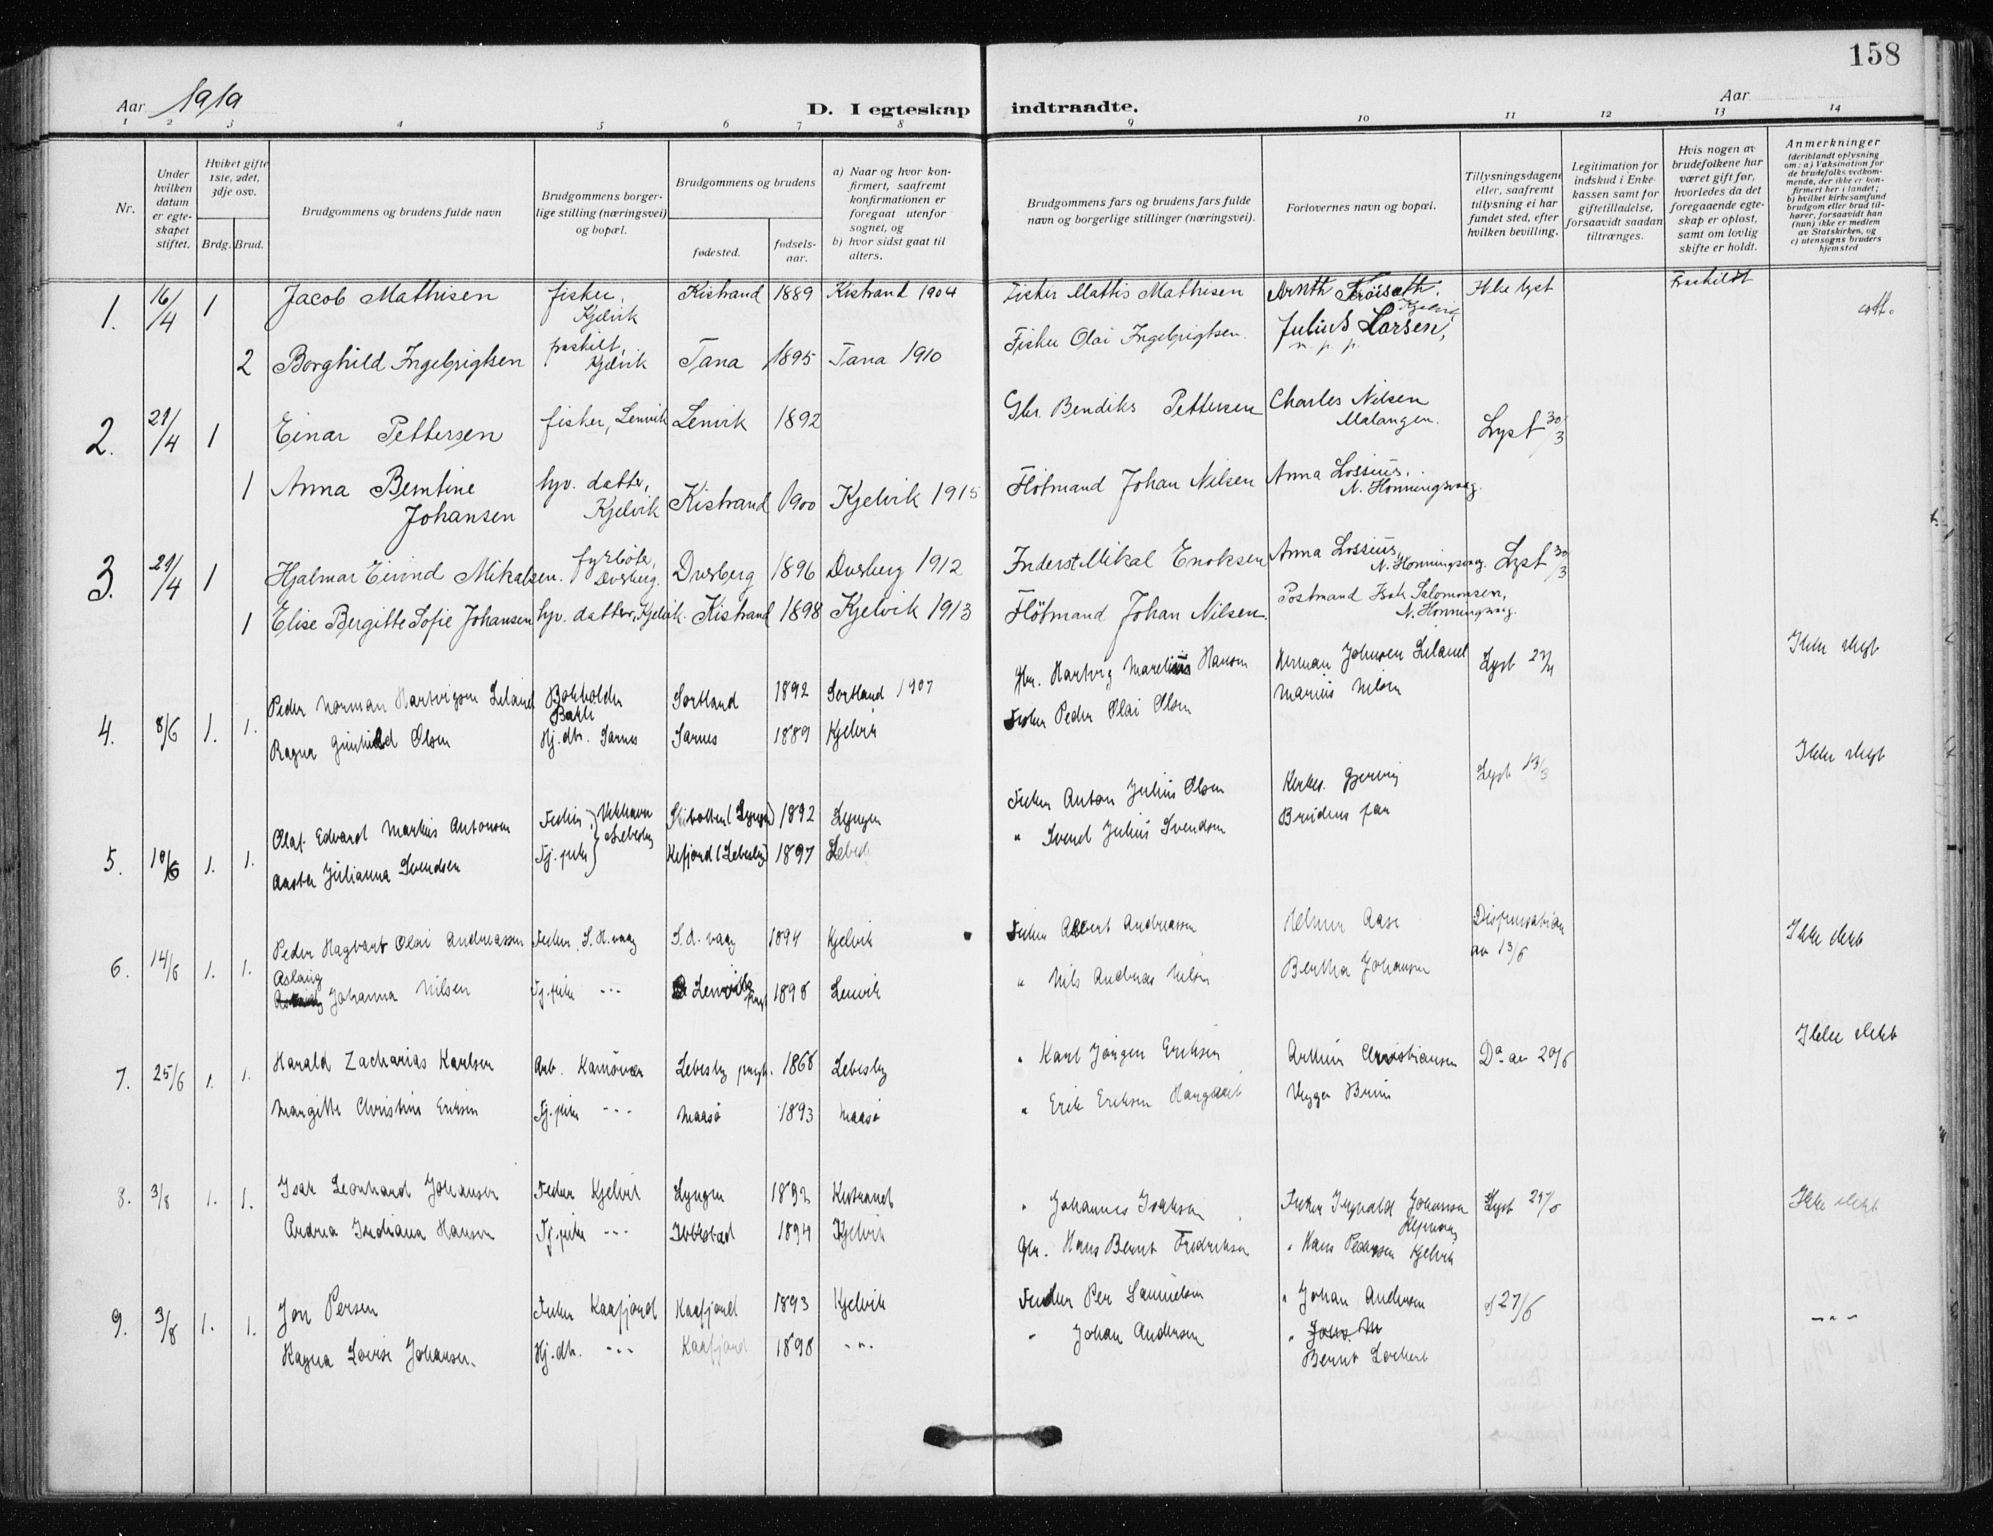 158
Aar 1919
D. I egteskap indtraadte.
Aar
1 2 3 4 5 6 7 8 9 10 11 12 13 14
Nr.
Under hvilken datum er egteskapet stiftet.
Hviket gifte 1ste, 2det, 3dje osv.
Brdg. Brud.
Brudgommens og brudens fulde navn
Brudgommens borgerlige stilling (næringsvei) og bopæl.
Brudgommens og brudens
fødested.
fødselsaar.
a) Naar og hvor konfirmert, saafremt konfirmationen er foregaat utenfor sognet, og
b) hvor sidst gaat til alters.
Brudgommens fars og brudens fars fulde navn og borgerlige stillinger (næringsvei).
Forlovernes navn og bopæl.
Tillysningsdagene eller, saafremt tillysning ei har fundet sted, efter hvilken bevilling.
Legitimation for indskud i Enkekassen samt for giftetilladelse, forsaavidt saadan tiltrænges.
Hvis nogen av brudefolkene har været gift før, hvorledes da det foregaaende egteskap er opløst, samt om lovlig skifte er holdt.
Anmerkninger (deriblandt oplysning om: a) Vaksination for de brudefolks vedkommende, der ikke er konfirmert her i landet; b) hvilket kirkesamfund brudgom eller brud tilhører, forsaavidt han (hun) ikke er medlem av Statskirken, og c) utensogns bruders hjemsted
1. 16/4 1 Jacob Mathisen fisker, Kjelvik Kistrand 1889 Kistrand 1904 Fisker Mattis Mathisen Kjelvik Ikke lyst Fraskildt att.
2 Borghild Ingebrigtsen fraskilt, Kjelvik Tana 1895 Tana 1910 Fisker Olai Ingebrigtsen. Julius Larsen,
2. 21/4 1 Einar Pettersen fisker, Lenvik Lenvik 1892 Gbr. Bendiks Pettersen Charles Nilsen Malangen. Lyst 30/3
1 Anna Bentine Johansen hjv. datter, Kjelvik Kistrand 1900 Kjelvik 1915 Fløtmand Johan Nilsen Anna Lossius, N. Honningsvaag.
3. 21/4 1 Hjalmar Eivind Mikalsen. fyrbøter, Dverberg. Dverberg 1896 Dverberg 1912 Inderst Mikal Enoksen Anna Lossius, N. Honningsvaag. Lyst 30/3
1 Elise Bergitte Sofie Johansen hjv. datter, Kjelvik. Kistrand 1898 Kjelvik 1913 Fløtmand Johan Nilsen. Postmand Isak Salomonsen, N. Honningsvaag.
4. 8/6 1. 1. Peder Norman Hartvigsen Leland Bokholder Sortland 1892 Sortland 1907 Gbr. Hartvig Marelius Hansen Herman Johnsen Leland Lyst Ikke slegt
Ragna Gunhild Olsen Hj.dtr. Sarnes Sarnes 1889 Kjelvik Fisker Peder Olai Olsen Marius Nilsen
5. 10/6 1. 1. Olaf Edvard Markus Antonsen Fisker Lebesby (Lyngen) 1892 Lyngen Fisker Anton Julius Olsen Kirkes. Gjerving Lyst 13/3 Ikke slegt
Aasta Julianna Svendsen Tj.pike Kifjord (Lebesby) 1897 " Svend Julius Svendsen Brudens far
6. 14/6 1. 1. Peder Hagbart Olai Andreassen Fisker, S. H. vaag S. H. vaag 1894 Kjelvik Fisker Albert Andreassen Helmer Aase Dispensation av 13/6 Ikke slekt
Aslaug Johanna Nilsen Tj.pike --- 1898 Lenvik " Nils Andreas Nilsen Bertha Johansen
7. 25/6 1. 1. Harald Zacharias Karlsen Arb. Kamøvær Lebesby prgj. 1868 Lebesby " Karl Jørgen Eriksen Arthur Christiansen Do av 20/6 Ikke slekt
Margitte Christine Eriksen Tj.pike --- Maasø 1893 Maasø " Erik Eriksen Viggo Bruun
8. 3/8 1. 1. Isak Leonhard Johansen Fisker Kjelvik Lyngen 1892 Kistrand " Johannes Isaksen Fisker Ingvald Johansen Lyst 29/6 Ikke slekt
Andrea Indiana Hansen Tj.pike --- Ibbestad 1894 Kjelvik Gbr. Hans Bernt Fredriksen " Hans Pedersen Kjelvik
9. 3/8 1. 1. Jon Persen Fisker Kaafjord Kaafjord 1893 Kjelvik Fisker Per Samuelsen " Johan Andersen 27/6 - " -
Ragna Lovise Johansen. Hj.dtr. --- Kaafjord 1898 - " - " Johan Andersen